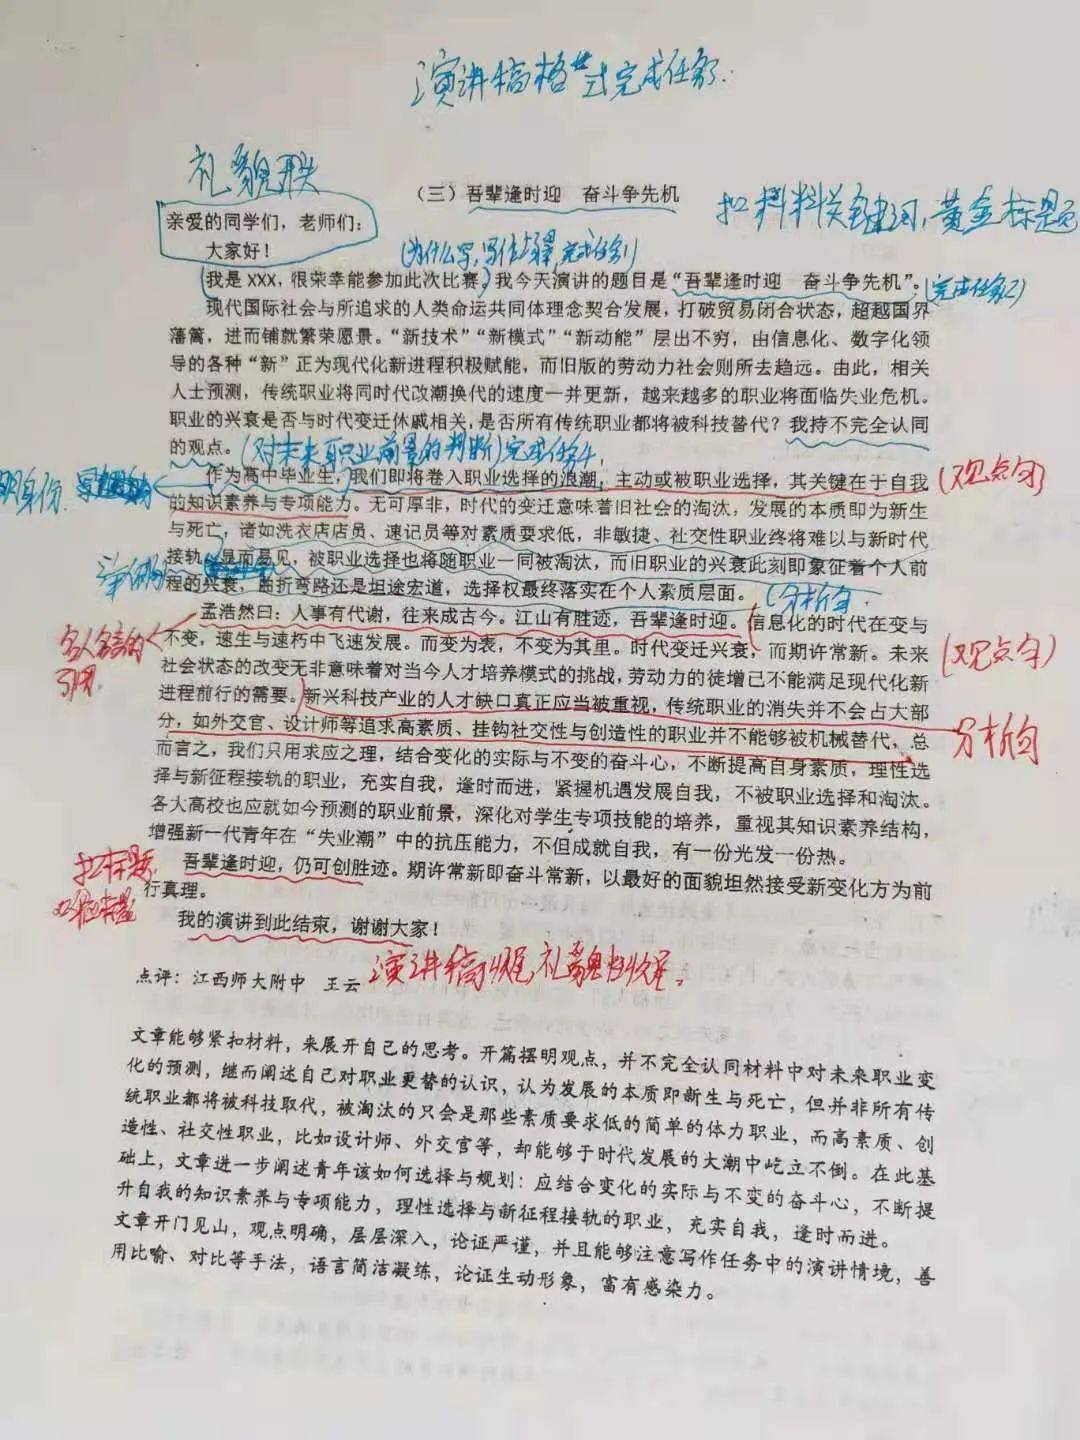 演讲稿格式完成任务.
礼貌开头
(三)吾辈逢时迎 奋斗争先机
扣材料关键词,黄金标题
亲爱的同学们,老师们:
大家好!
(为什么写,写作背景,完成任务1)
我是 XXX,很荣幸能参加此次比赛,我今天演讲的题目是“吾辈逢时迎 奋斗争先机”。
(完成任务2)
现代国际社会与所追求的人类命运共同体理念契合发展,打破贸易闭合状态,超越国界
藩篱,进而铺就繁荣愿景。“新技术”“新模式”“新动能”层出不穷,由信息化、数字化领
导的各种“新”正为现代化新进程积极赋能,而旧版的劳动力社会则所去趋远。由此,相关
人士预测,传统职业将同时代改潮换代的速度一并更新,越来越多的职业将面临失业危机。
职业的兴衰是否与时代变迁休戚相关,是否所有传统职业都将被科技替代?我持不完全认同
的观点。
(对未来职业前景的判断)完成任务
明身份
作为高中毕业生,我们即将卷入职业选择的浪潮,主动或被职业选择,其关键在于自我
(观点句)
的知识素养与专项能力。无可厚非,时代的变迁意味着旧社会的淘汰,发展的本质即为新生
与死亡,诸如洗衣店店员、速记员等对素质要求低,非敏捷、社交性职业终将难以与新时代
接轨。显而易见,被职业选择也将随职业一同被淘汰,而旧职业的兴衰此刻即象征着个人前
程的兴衰,曲折弯路还是坦途宏道,选择权最终落实在个人素质层面。
(分析句.
孟浩然曰:人事有代谢,往来成古今。江山有胜迹,吾辈逢时迎。信息化的时代在变与
名人名言的
引用.
不变,速生与速朽中飞速发展。而变为表,不变为其里。时代变迁兴衰,而期许常新。未来
(观点句)
社会状态的改变无非意味着对当今人才培养模式的挑战,劳动力的徒增已不能满足现代化新
进程前行的需要。新兴科技产业的人才缺口真正应当被重视,传统职业的消失并不会占大部
分,如外交官、设计师等追求高素质、挂钩社交性与创造性的职业并不能够被机械替代。总
分析句
而言之,我们只用求应之理,结合变化的实际与不变的奋斗心,不断提高自身素质,理性选
择与新征程接轨的职业,充实自我,逢时而进,紧握机遇发展自我,不被职业选择和淘汰。
各大高校也应就如今预测的职业前景,深化对学生专项技能的培养,重视其知识素养结构,
增强新一代青年在“失业潮”中的抗压能力,不但成就自我,有一份光发一份热。
扣标题,
吾辈逢时迎,仍可创胜迹。期许常新即奋斗常新,以最好的面貌坦然接受新变化方为前
行真理。
我的演讲到此结束,谢谢大家!
演讲稿收尾,礼貌性收尾。
点评:江西师大附中 王云
文章能够紧扣材料,来展开自己的思考。开篇摆明观点,并不完全认同材料中对未来职业变
化的预测,继而阐述自己对职业更替的认识,认为发展的本质即新生与死亡,但并非所有传
统职业都将被科技取代,被淘汰的只会是那些素质要求低的简单的体力职业,而高素质、创
造性、社交性职业,比如设计师、外交官等,却能够于时代发展的大潮中屹立不倒。在此基
础上,文章进一步阐述青年该如何选择与规划:应结合变化的实际与不变的奋斗心,不断提
升自我的知识素养与专项能力,理性选择与新征程接轨的职业,充实自我,逢时而进。
文章开门见山,观点明确,层层深入,论证严谨,并且能够注意写作任务中的演讲情境,善
用比喻、对比等手法,语言简洁凝练,论证生动形象,富有感染力。